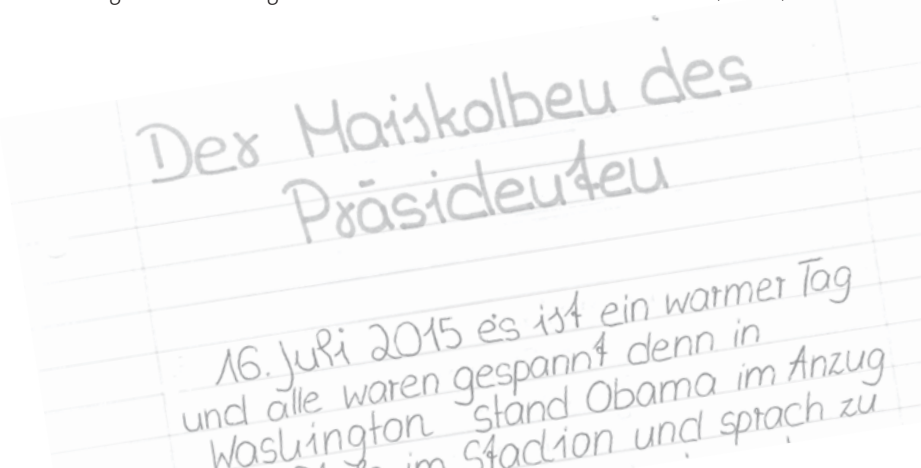 Der Maiskolben des
Präsidenten
16. Juli 2015 es ist ein warmer Tag
und alle waren gespannt denn in
Washington stand Obama im Anzug
im Stadion und sprach zu